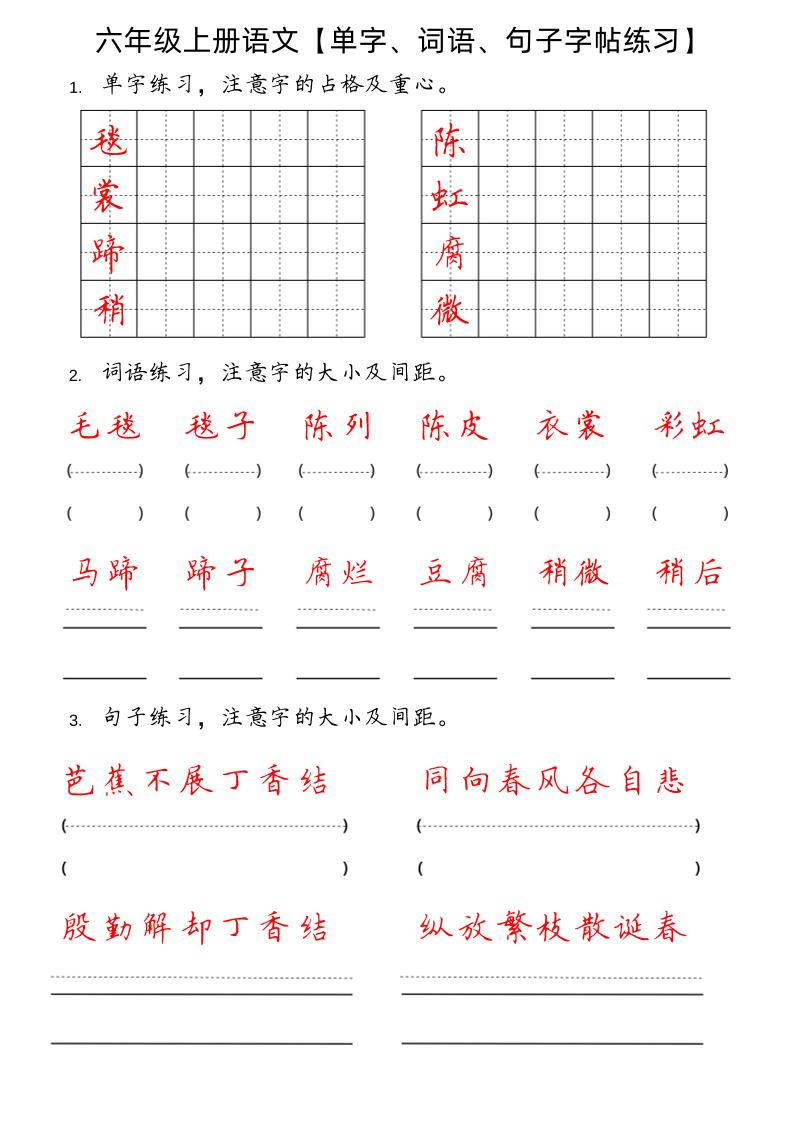 六年级上册语文【单字、词语、句子字帖练习】
1. 单字练习，注意字的占格及重心。
毯 陈
裳 虹
蹄 腐
稍 微
2. 词语练习，注意字的大小及间距。
毛毯 毯子 陈列 陈皮 衣裳 彩虹
( ) ( ) ( ) ( ) ( ) ( )
( ) ( ) ( ) ( ) ( ) ( )
马蹄 蹄子 腐烂 豆腐 稍微 稍后
3. 句子练习，注意字的大小及间距。
芭蕉不展丁香结 同向春风各自悲
( ) ( )
( ) ( )
殷勤解却丁香结 纵放繁枝散诞春